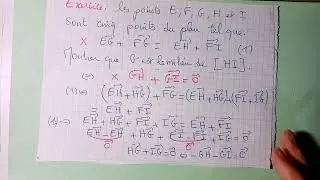 Exercice: les points E, F, G, H et I
sont cinq points du plan tel que:
× EG + FG = EH + FI (1)
Montrer que G est le milieu de [HI].
(=) × GH + GI = 0
(1) ⇔ (EH + HG) + FG = (EH + HG) + (FI + IG)
= EH + FI
(1) ⇔ EH + HG + FI + IG = EH + FI
EH - EH + HG + FI - FI + IG = 0
0 0
HG + IG = 0 ⇔ -GH - GI = 0